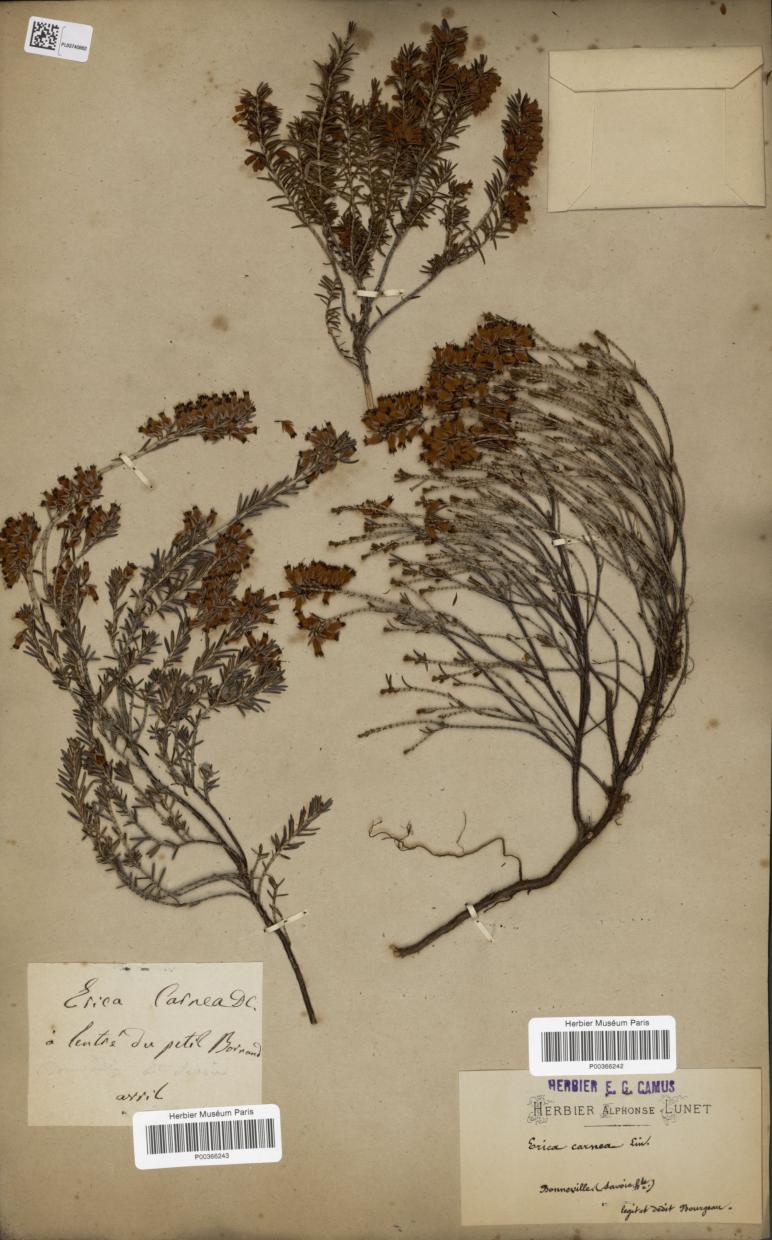 PL00740662
Erica Carnea DC.
à lentré du petit Bornand
avril
Herbier Muséum Paris
P00366243
Herbier Muséum Paris
P00366242
HERBIER E. G. CAMUS
HERBIER ALPHONSE LUNET
Erica carnea Lin.
Bonneville (Savoie Hte.)
legit et dedit Bourgeau.